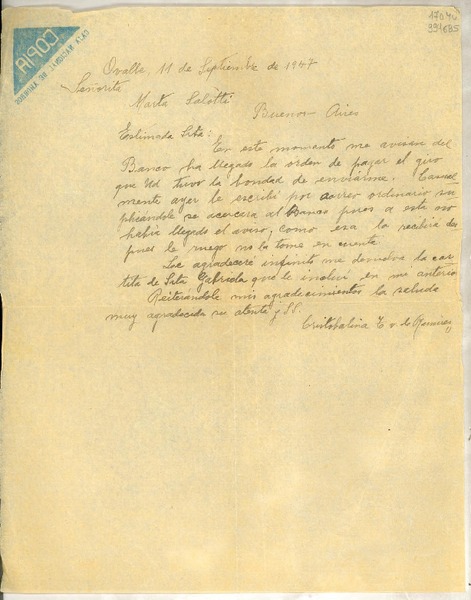 COPIA
CAJA NACIONAL DE AHORROS
17040
991685
Ovalle, 11 de Septiembre de 1947
Señorita
Marta Salotti
Buenos Aires
Estimada Srta:
En este momento me avisan del
Banco ha llegado la orden de pagar el giro
que Ud tuvo la bondad de enviarme. Casual
mente ayer le escribí por correo ordinario su
plicándole se acercara al Banco pues a esta no
había llegado el aviso, como esa la recibirá des
pues le ruego no la tome en cuenta.
Le agradeceré infinito me devuelva la car
tita de Srta Gabriela que le incluí en mi anterior
Reiterándole mis agradecimientos la saluda
muy agradecida su atenta y SS.
Cristobalina T v de Ramírez